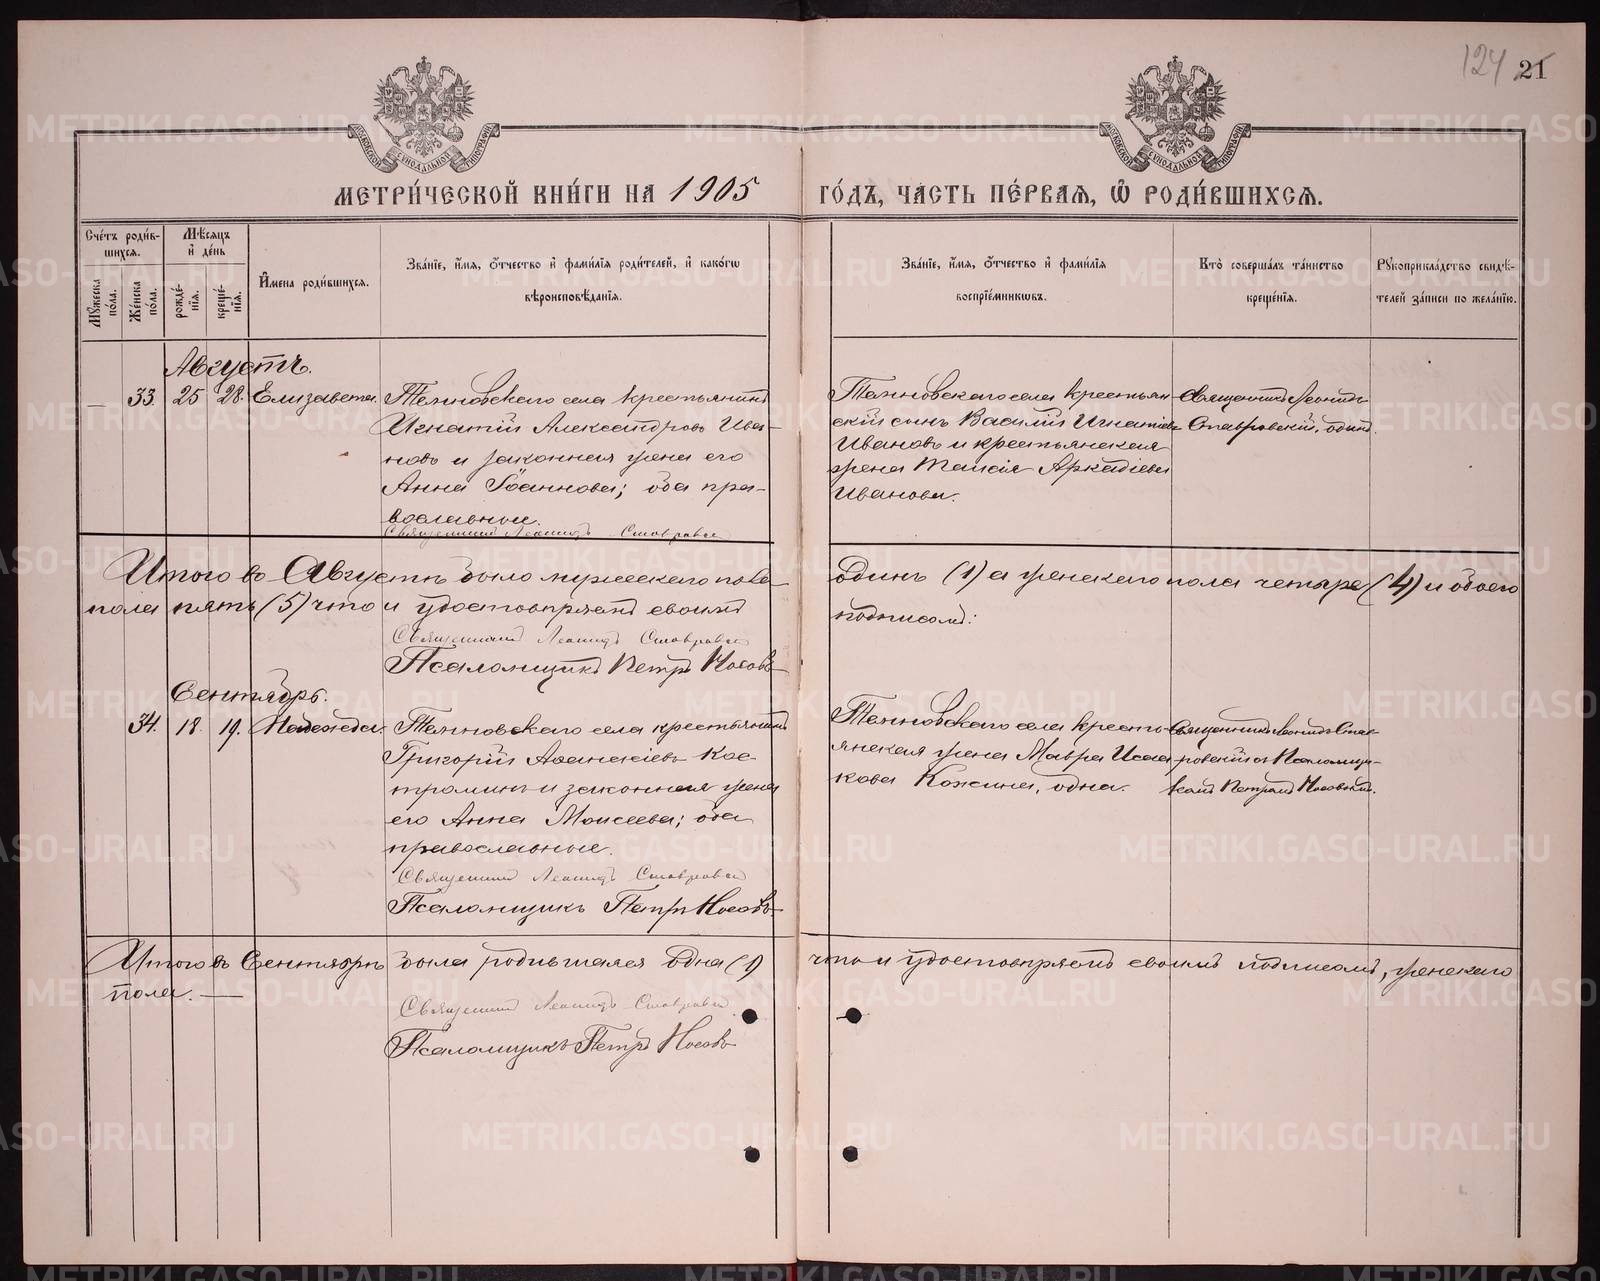 124 21
МЕТРИ́ЧЕСКОЙ КНИ́ГИ НА 1905 ГО́ДЪ, ЧА́СТЬ ПЕ́РВАЯ, Ѡ РОДИ́ВШИХСЯ.
Сче́тъ роди́в-
шихся.
Мѣ́сяцъ
и́ де́нь
Мꙋ́жеска
по́ла.
Же́нска
по́ла.
рожде́-
нїѧ.
креще́-
нїѧ.
И҆мена роди́вшихся.
Зва́нїе, и҆́мѧ, ѻ҆́тчество и҆ фами́лїѧ роди́телей, и҆ како́гѡ
вѣроисповѣ́данїѧ.
Зва́нїе, и҆́мѧ, ѻ҆́тчество и҆ фами́лїѧ
воспрїе́мникѡвъ.
Кто̀ соверша́лъ та́инство
креще́нїѧ.
Рꙋкоприкла́дство свидѣ́-
телей за́писи по жела́нїю.
Августъ.
— 33. 25 28. Елизавета.
Темновскаго села крестьянинъ
Игнатій Александровъ Ива-
новъ и законная жена его
Анна Іоаннова; оба пра-
вославные.
Священникъ Леонидъ Ставровскій
Темновскаго села крестьян
скій сынъ Василій Игнатіевъ
Ивановъ и крестьянская
жена Таисія Аркадіева
Иванова.
Священникъ Леонидъ
Ставровскій, одинъ.
Итого въ Августѣ было мужескаго пола один (1) а женскаго пола четыре (4) и обоего
пола пять (5) что и удостовѣряемъ своимъ подписомъ:
Священникъ Леонидъ Ставровскій
Псаломщикъ Петръ Носовъ
Сентябрь.
34. 18. 19. Надежда.
Темновскаго села крестьянинъ
Григорій Аѳанасіевъ Кос-
троминъ и законная жена
его Анна Моисеева; оба
православные.
Священникъ Леонидъ Ставровскій
Псаломщикъ Петръ Носовъ
Темновскаго села кресть-
янская жена Мавра Исаа
кова Кожина, одна.
Священникъ Леонидъ Став-
ровскій съ Псаломщи-
комъ Петромъ Носовымъ.
Итого въ Сентябрѣ была родившаяся одна (1) что и удостовѣряемъ своимъ подписомъ, женскаго
пола. —
Священникъ Леонидъ Ставровскій
Псаломщикъ Петръ Носовъ
METRIKI.GASO-URAL.RU